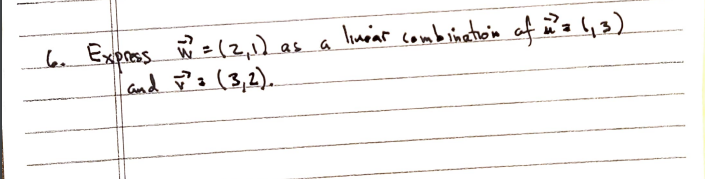 6. Express w⃗ = (2,1) as a linear combination of u⃗ = (1,3)
and v⃗ = (3,2).